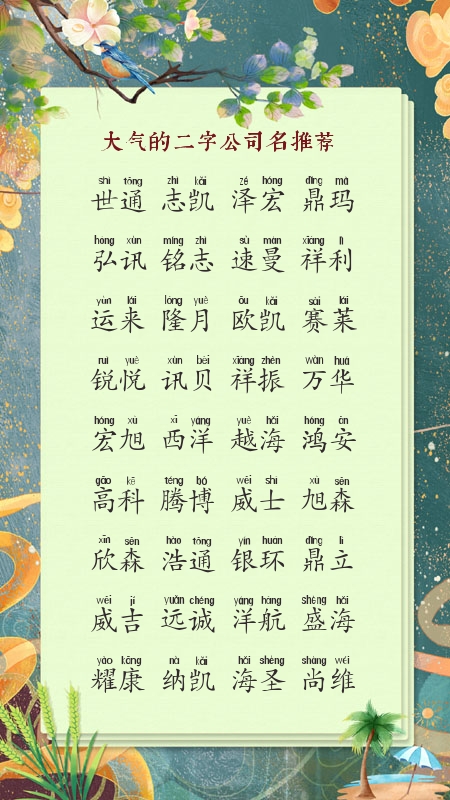 大气的二字公司名推荐
shì tōng zhì kǎi zé hóng dǐng mǎ
世通 志凯 泽宏 鼎玛
hóng xùn míng zhì sù màn xiáng lì
弘讯 铭志 速曼 祥利
yùn lái lóng yuè ōu kǎi sài lái
运来 隆月 欧凯 赛莱
ruì yuè xùn bèi xiáng zhèn wàn huá
锐悦 讯贝 祥振 万华
hóng xù xī yáng yuè hǎi hóng ān
宏旭 西洋 越海 鸿安
gāo kē téng bó wēi shì xù sēn
高科 腾博 威士 旭森
xīn sēn hào tōng yín huán dǐng lì
欣森 浩通 银环 鼎立
wēi jí yuǎn chéng yáng háng shèng hǎi
威吉 远诚 洋航 盛海
yào kāng nà kǎi hǎi shèng shàng wéi
耀康 纳凯 海圣 尚维